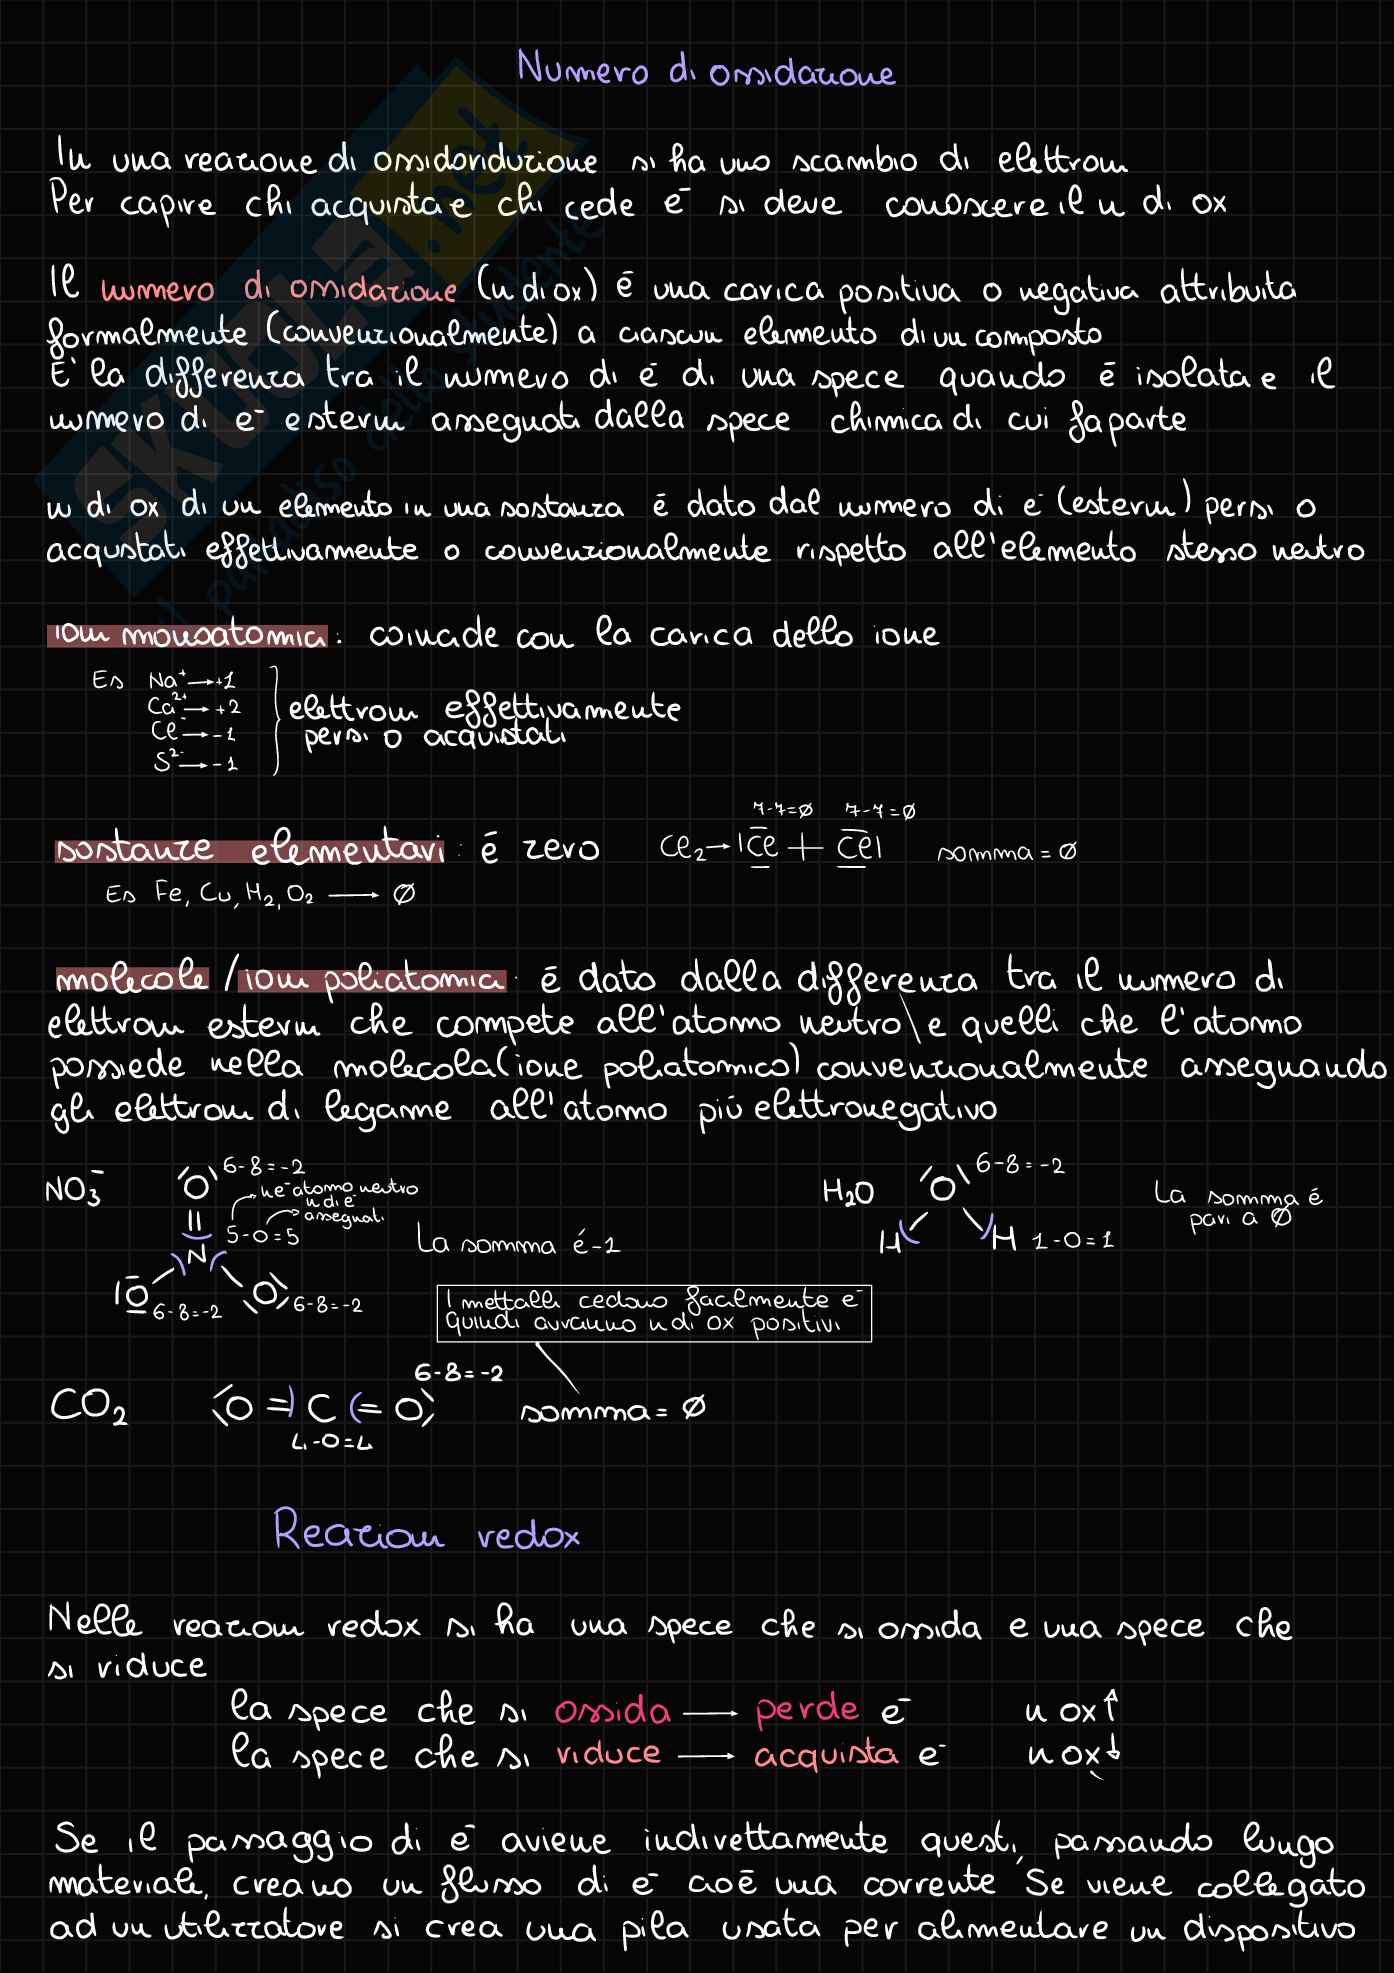 Numero di ossidazione
In una reazione di ossidoriduzione si ha uno scambio di elettroni
Per capire chi acquista e chi cede e⁻ si deve conoscere il n di ox
Il numero di ossidazione (n di ox) é una carica positiva o negativa attribuita
formalmente (convenzionalmente) a ciascun elemento di un composto
E' la differenza tra il numero di e⁻ di una spece quando é isolata e il
numero di e⁻ esterni assegnati dalla spece chimica di cui fa parte
n di ox di un elemento in una sostanza é dato dal numero di e⁻ (esterni) persi o
acqustati effettivamente o convenzionalmente rispetto all'elemento stesso neutro
ioni monoatomici: coincide con la carica dello ione
Es Na⁺ → +1
Ca²⁺ → +2
Cl⁻ → -1
S²⁻ → -1
elettroni effettivamente
persi o acquistati
7-7=∅ 7-7=∅
sostanze elementari: é zero Cl₂ → |Cl + Cl| somma = ∅
Es Fe, Cu, H₂, O₂ → ∅
molecole / ioni poliatomici: é dato dalla differenza tra il numero di
elettroni esterni che compete all'atomo neutro e quelli che l'atomo
possiede nella molecola (ione poliatomico) convenzionalmente assegnando
gli elettroni di legame all'atomo più elettronegativo
NO₃⁻ O 6-8=-2
n e⁻ atomo neutro
n di e⁻
assegnati
5-0=5
N
O 6-8=-2 O 6-8=-2
La somma é -1
H₂O O 6-8=-2
H H 1-0=1
La somma é
pari a ∅
I mettalli cedono facilmente e⁻
quindi avranno n di ox positivi
6-8=-2
CO₂ O = C = O somma = ∅
4-0=4
Reazioni redox
Nelle reazioni redox si ha una spece che si ossida e una spece che
si riduce
la spece che si ossida → perde e⁻ n ox ↑
la spece che si riduce → acquista e⁻ n ox ↓
Se il passaggio di e⁻ aviene indirettamente questi, passando lungo
materiali, creano un flusso di e⁻ cioé una corrente. Se viene collegato
ad un utilizzatore si crea una pila usata per alimentare un dispositivo
SKUOLA.net